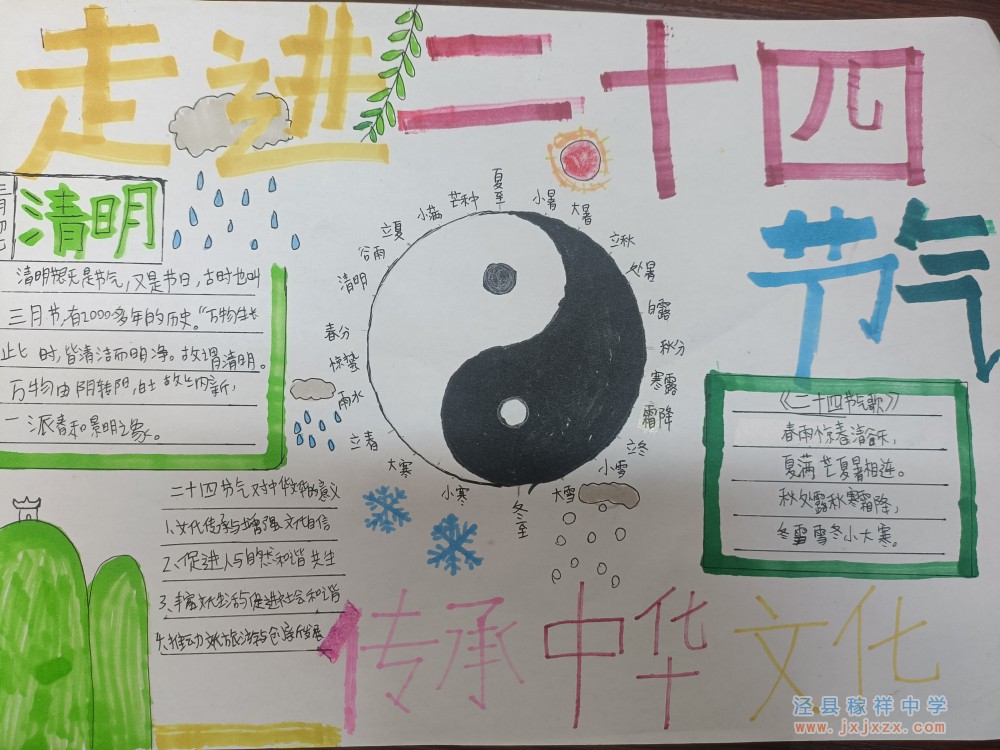 走进二十四
节气
清明
清明既是节气,又是节日,古时也叫
三月节,有2000多年的历史。"万物生长
此时,皆清洁而明净。故谓清明。
万物由阴转阳,吐故纳新,
一派春和景明之象。
夏至
小暑
大暑
立秋
处暑
白露
秋分
寒露
霜降
立冬
小雪
大雪
冬至
小寒
大寒
立春
雨水
惊蛰
春分
清明
谷雨
立夏
小满
芒种
《二十四节气歌》
春雨惊春清谷天,
夏满芒夏暑相连。
秋处露秋寒霜降,
冬雪雪冬小大寒。
二十四节气对中华的意义
1、文化传承与增强文化自信
2、促进人与自然和谐共生
3、丰富文化生活与促进社会和谐
4、推动文旅旅游与创意发展
传承中华文化
泾县稼祥中学
www.jxjxzx.com